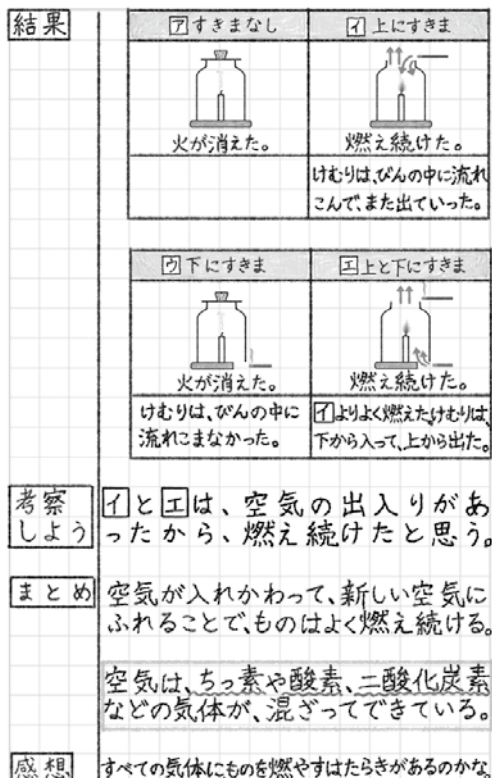 結果
ア すきまなし
イ 上にすきま
火が消えた。
燃え続けた。
けむりは、びんの中に流れ
こんで、また出ていった。
ウ 下にすきま
エ 上と下にすきま
火が消えた。
燃え続けた。
けむりは、びんの中に
流れこまなかった。
イよりよく燃えた。けむりは、
下から入って、上から出た。
考察
しよう
イとエは、空気の出入りがあ
ったから、燃え続けたと思う。
まとめ
空気が入れかわって、新しい空気に
ふれることで、ものはよく燃え続ける。
空気は、ちっ素や酸素、二酸化炭素
などの気体が、混ざってできている。
感想
すべての気体にものを燃やすはたらきがあるのかな